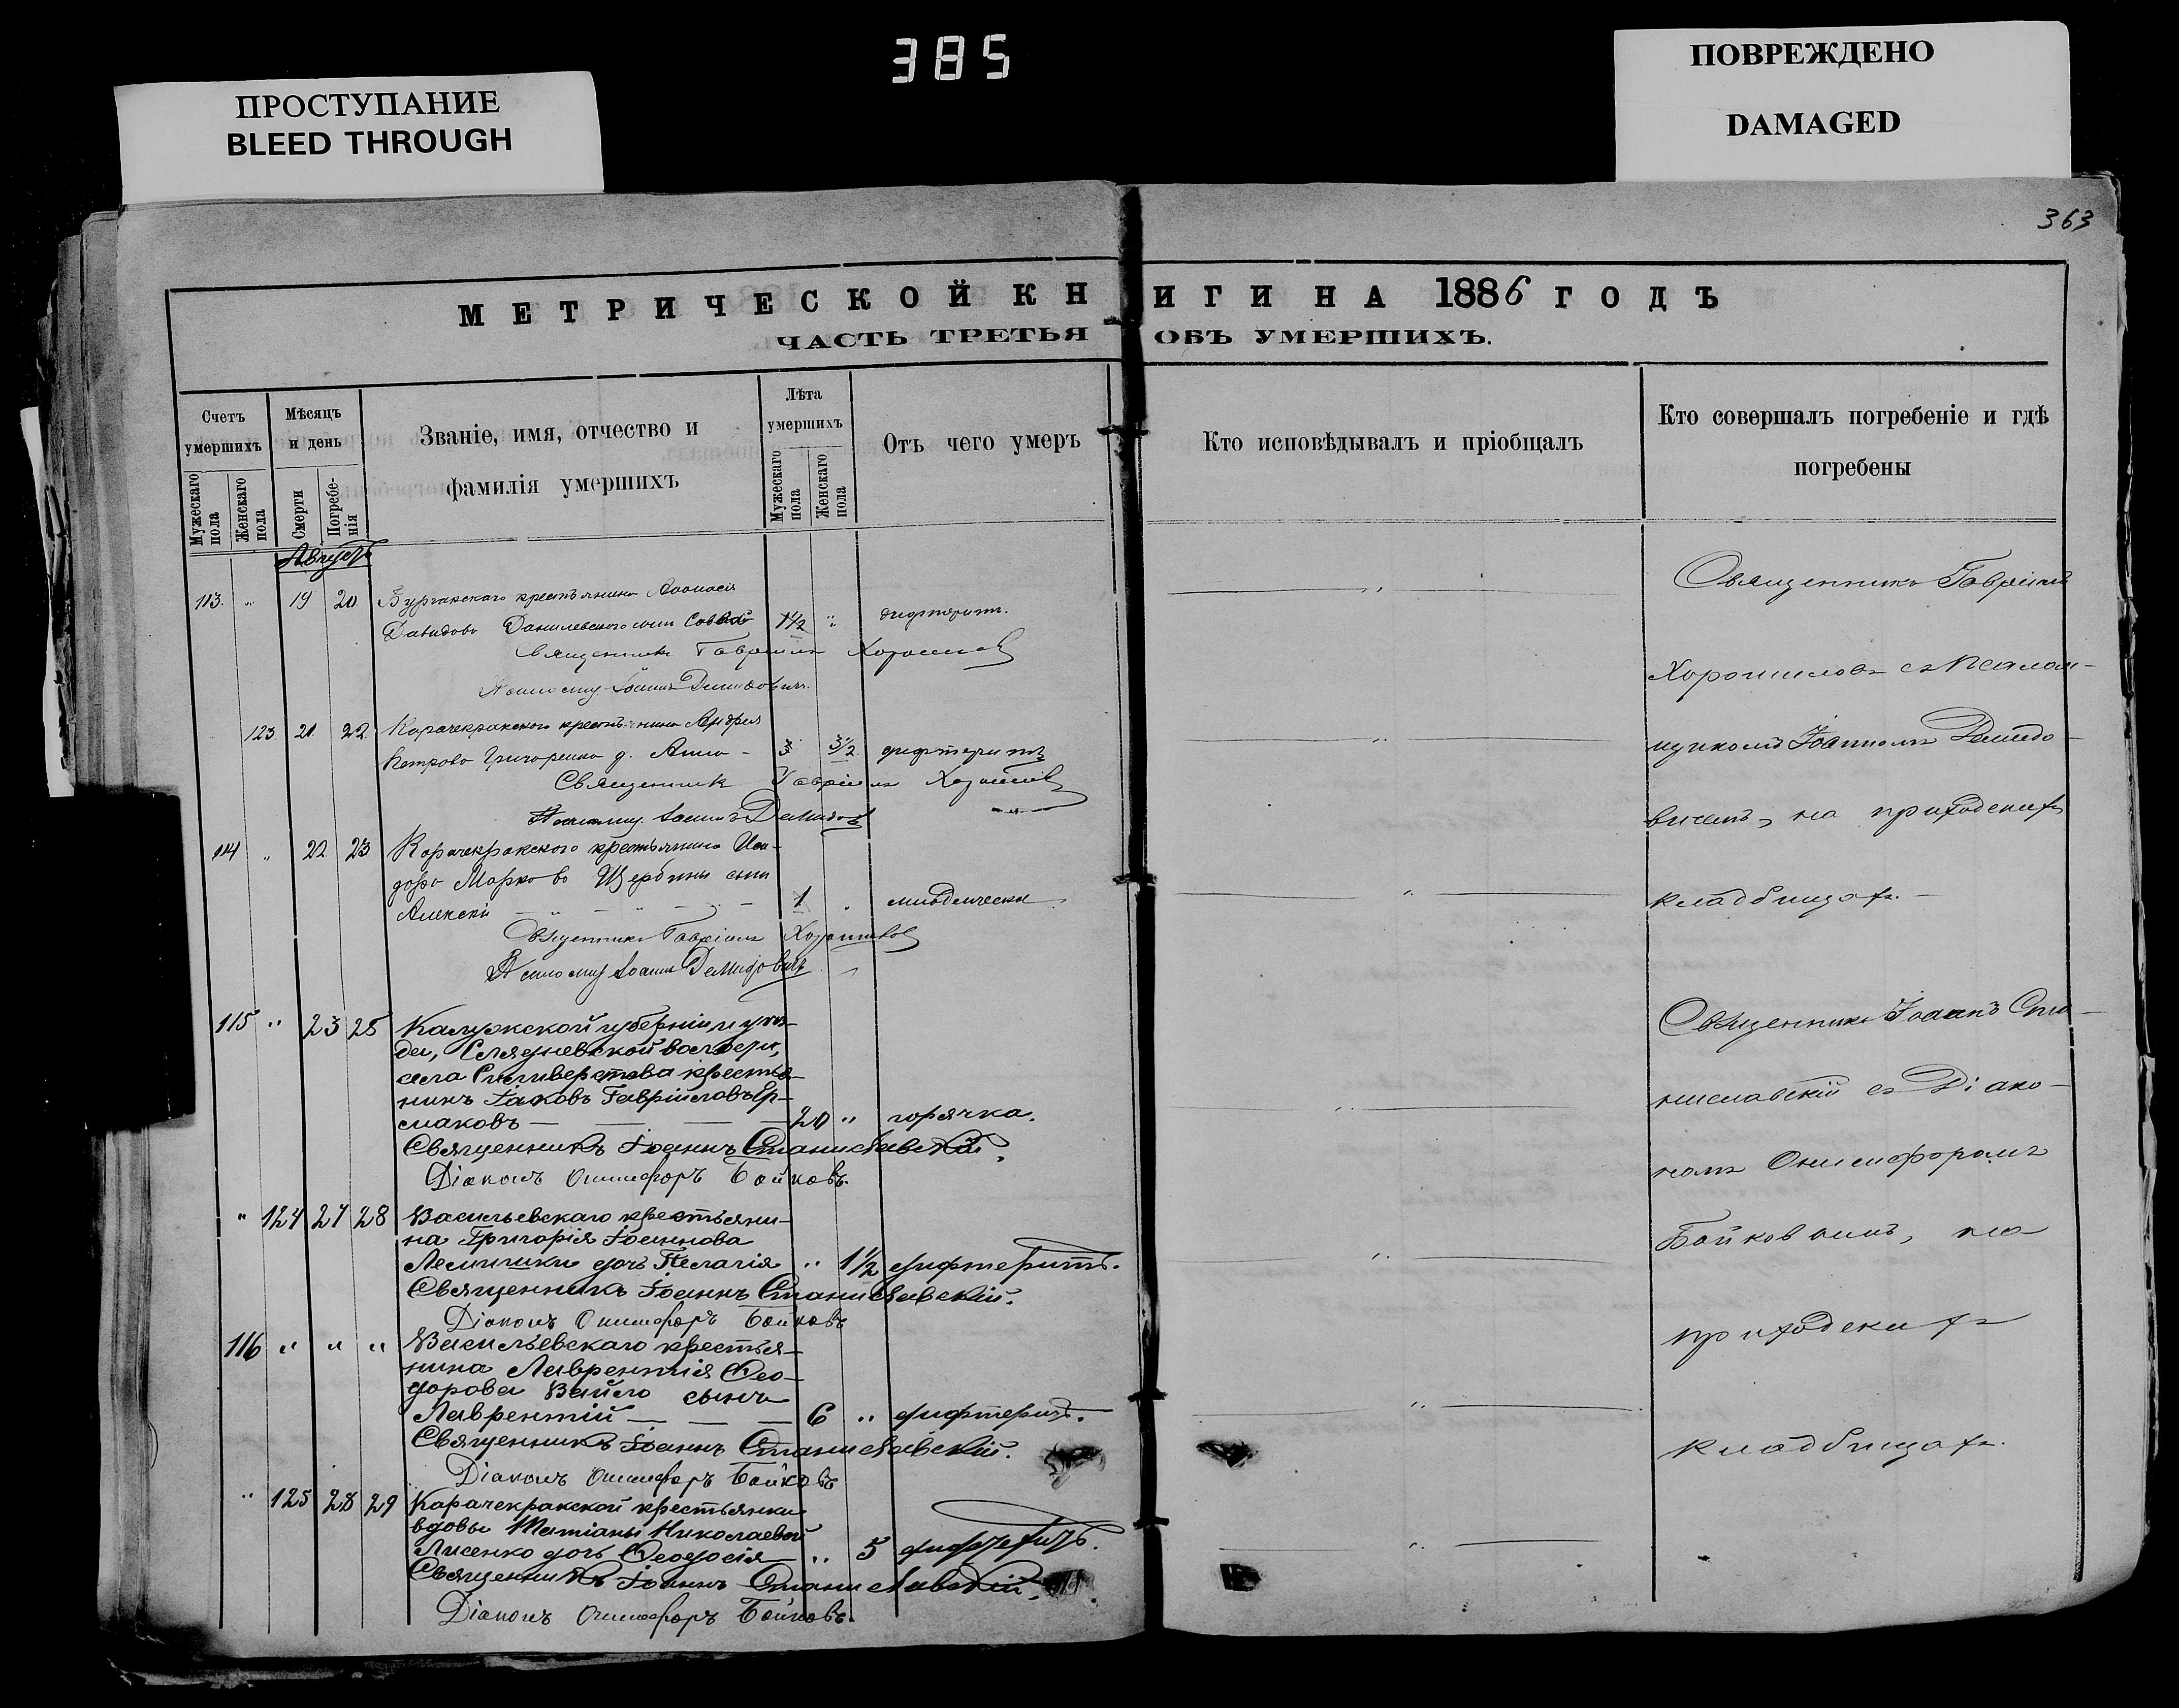 385
ПРОСТУПАНИЕ
BLEED THROUGH
ПОВРЕЖДЕНО
DAMAGED
363
МЕТРИЧЕСКОЙ КНИГИ НА 1886 ГОДЪ
ЧАСТЬ ТРЕТЬЯ ОБЪ УМЕРШИХЪ.
Счетъ умершихъ
Мужескаго пола
Женскаго пола
Мѣсяцъ и день
Смерти
Погребенія
Званіе, имя, отчество и
фамилія умершихъ
Лѣта умершихъ
Мужескаго пола
Женскаго пола
Отъ чего умеръ
Кто исповѣдывалъ и пріобщалъ
Кто совершалъ погребеніе и гдѣ
погребены
Августъ
113. " 19 20 крестьянина Аѳанасія
Давидова Данилевскаго сынъ Савва 1½ " дифтеритъ.
Священникъ Гавріилъ Хорошиловъ
Псаломщ. Іоаннъ Демидовичъ.
123. 21. 22. Карачекракскаго крестьянина Андрея
Петрова Григоренка д. Анна - 3 3½ дифтеритъ
Священникъ Гавріилъ Хорошиловъ
Псаломщ. Іоаннъ Демидов
114 " 22 23 Карачекракскаго крестьянина Иси-
дора Маркова Щербины сынъ
Алексѣй 1 " младенческая
Священникъ Гавріилъ Хорошиловъ
Псаломщ Іоаннъ Демидовичъ
115 " 23 25 Калужской губерніи и уѣз-
да, волости,
села Силиверстова крестья-
нинъ Іаковъ Гавріиловъ Ер-
маковъ — — — 20 " горячка.
Священникъ Іоаннъ Станиславскій.
Діаконъ Онисифоръ Бойковъ.
" 124 27 28 Васильевскаго крестьяни-
на Григорія Іоаннова
дочь Пелагія " 1½ дифтеритъ.
Священникъ Іоаннъ Станиславскій.
Діаконъ Онисифоръ Бойковъ
116 " " " Васильевскаго крестья-
нина Лаврентія Ѳео-
дорова Вайло сынъ
Лаврентій — — — 6 " дифтеритъ.
Священникъ Іоаннъ Станиславскій.
Діаконъ Онисифоръ Бойковъ
" 125 28 29 Карачекракской крестьянки
вдовы Татіаны Николаевой
Лисенко дочь Ѳеодосія " 5 дифтеритъ.
Священникъ Іоаннъ Станиславскій.
Діаконъ Онисифоръ Бойковъ.
Священникъ Гавріилъ
Хорошиловъ съ Псалом-
щикомъ Іоанномъ Демидо-
вичемъ, на приходскихъ
кладбищахъ.
Священникъ Іоаннъ Ста-
ниславскій съ Діако-
номъ Онисифоромъ
Бойковымъ, на
приходскихъ
кладбищахъ.